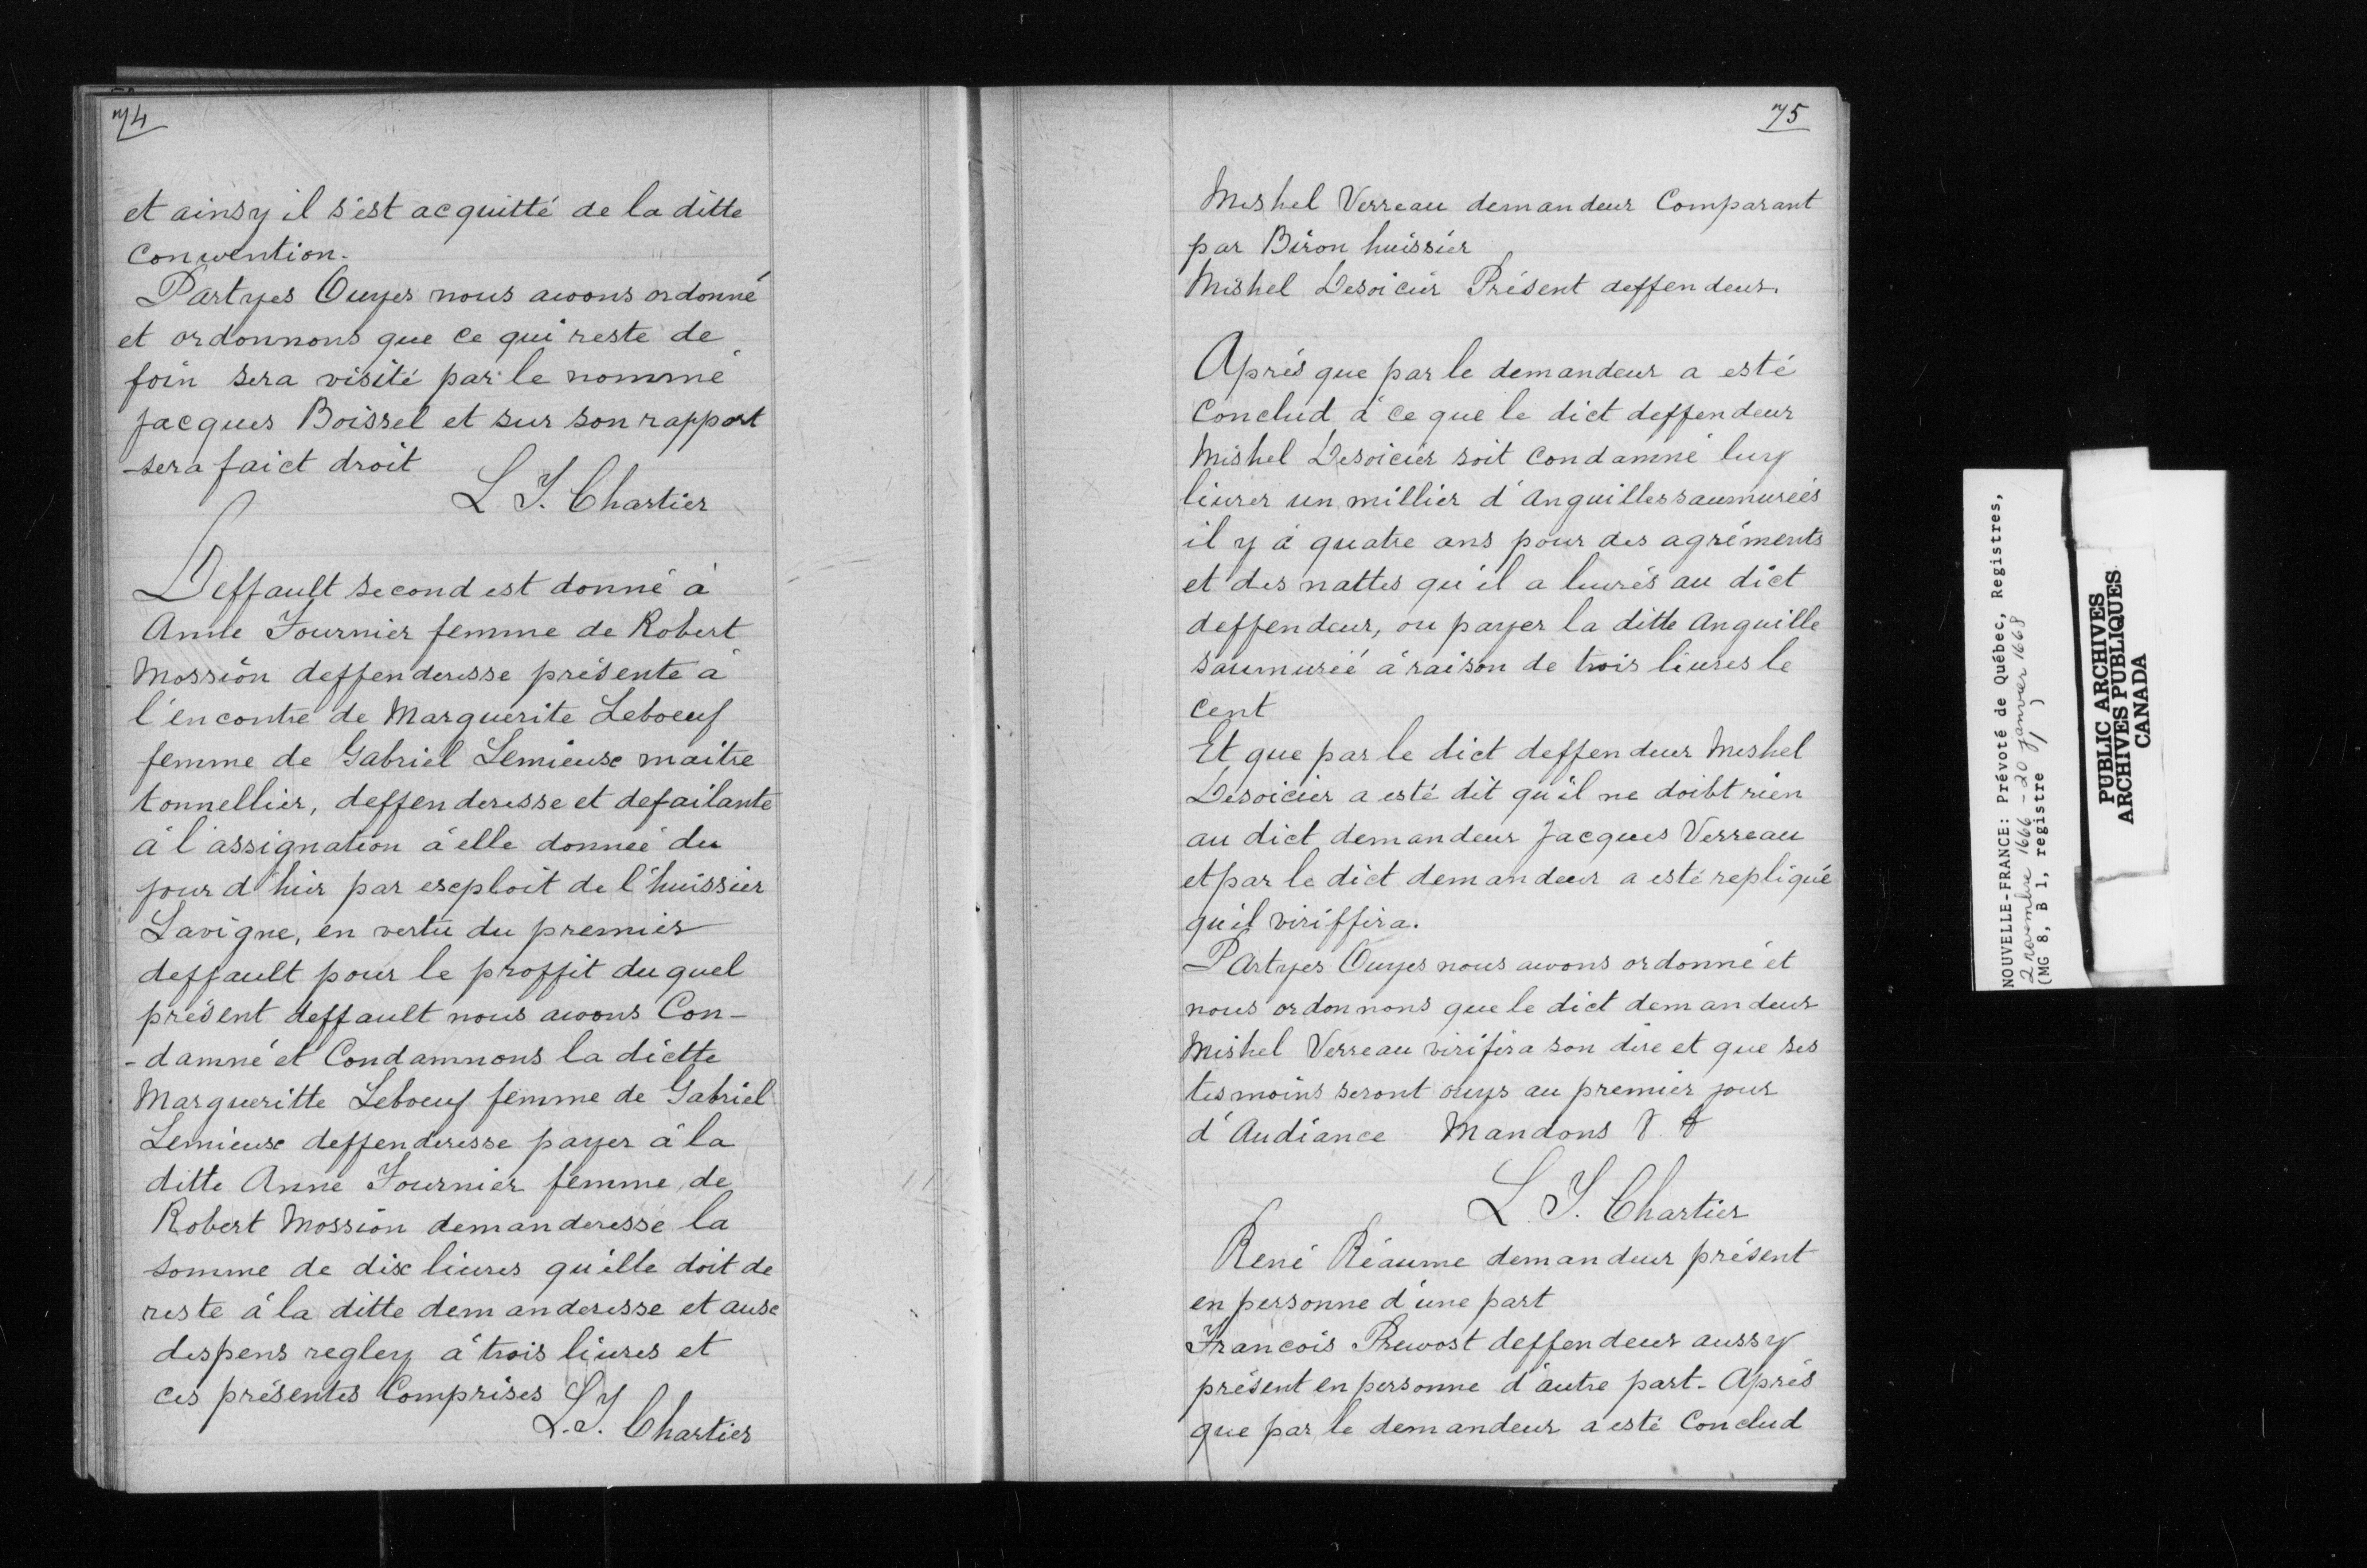 74
et ainsy il s'est acquitté de la ditte
conwention.
Partyes Ouyes nous awons ordonné
et ordonnons que ce qui reste de
foin sera visité par le nommé
Jacques Boissel et sur son rapport
sera faict droit
L T. Chartier
Deffault second est donné à
Anne Fournier femme de Robert
Mossion deffenderesse présente à
l'encontre de Marguerite Leboeuf
femme de Gabriel Lemieux maitre
tonnellier, deffenderesse et defailante
à l'assignation à elle donnée du
jour d'hier par exploit de l'huissier
Lavigne, en vertu du premier
deffault pour le proffit du quel
présent deffault nous awons Con-
-damné et Condamnons la dictte
Margueritte Leboeuf femme de Gabriel
Lemieux deffenderesse payer à la
ditte Anne Fournier femme de
Robert Mossion demanderesse la
somme de dix liures qu'elle doit de
reste à la ditte demanderesse et aux
despens regley à trois liures et
ces présentes Comprises
L. T. Chartier
75
Mishel Verreau demandeur Comparant
par Biron huissier
Mishel Desoicier Présent deffendeur.
Aprés que par le demandeur a esté
Conclud à ce que le dict deffendeur
Mishel Desoicier soit Condamné luy
liurer un millier d'Anguilles saumurées
il y à quatre ans pour des agréments
et des nattes qu'il a liurés au dict
deffendeur, ou payer la ditte Anguille
saumurée à raison de trois liures le
cent
Et que par le dict deffendeur Mishel
Desoicier a esté dit qu'il ne doibt rien
au dict demandeur Jacques Verreau
et par le dict demandeur a esté repliqué
qu'il viriffira.
Partyes Ouyes nous awons ordonné et
nous ordonnons que le dict demandeur
Mishel Verreau virifira son dire et que ses
tesmoins seront ouys au premier jour
d'Audiance Mandons
L. T. Chartier
René Réaume demandeur présent
en personne d'une part
Francois Preuost deffendeur aussy
présent en personne d'autre part. Aprés
que par le demandeur a esté Conclud
NOUVELLE-FRANCE: Prévoté de Québec, Registres,
2 novembre 1666 - 20 janvier 1668
(MG 8, B 1, registre
PUBLIC ARCHIVES
ARCHIVES PUBLIQUES
CANADA